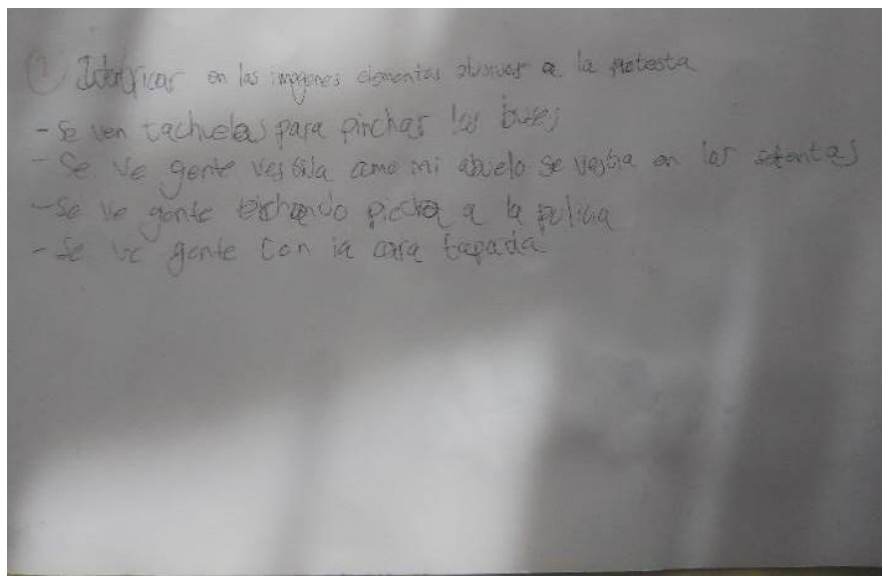 ① Identificar en las imagenes elementos alusivos a la protesta
- Se ven tachuelas para pinchar los buses
- Se ve gente vestida como mi abuelo se vestia en los setentas
- Se ve gente echando piedra a la policia
- Se ve gente con la cara tapada